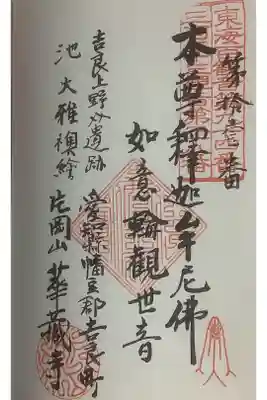 第拾壱番
本尊釋迦牟尼佛
如意輪觀世音
愛知縣幡豆郡吉良町
吉良上野介遺跡
池大雅襖繪
片岡山華蔵寺